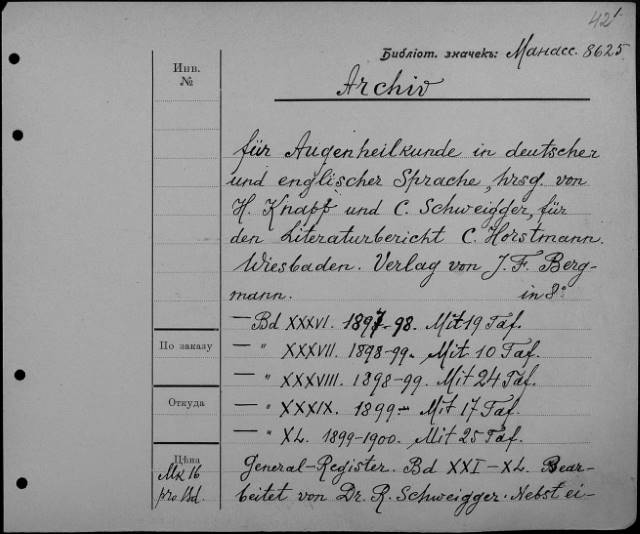 42¹
Библіот. значекъ: Манасс. 8625.
Инв.
№
Archiv
für Augenheilkunde in deutscher
und englischer Sprache, hrsg. von
H. Knapp und C. Schweigger, für
den Literaturbericht C. Horstmann.
Wiesbaden. Verlag von J. F. Berg-
mann. in 8°
— Bd XXXVI. 1897-98. Mit 19 Taf.
— " XXXVII. 1898-99. Mit 10 Taf.
— " XXXVIII. 1898-99. Mit 24 Taf.
— " XXXIX. 1899- Mit 17 Taf.
— " XL. 1899-1900. Mit 25 Taf.
General-Register. Bd XXI-XL. Bear-
beitet von Dr. R. Schweigger. Nebst ei-
По заказу
Откуда
Цѣна
Mk 16
pro Bd.